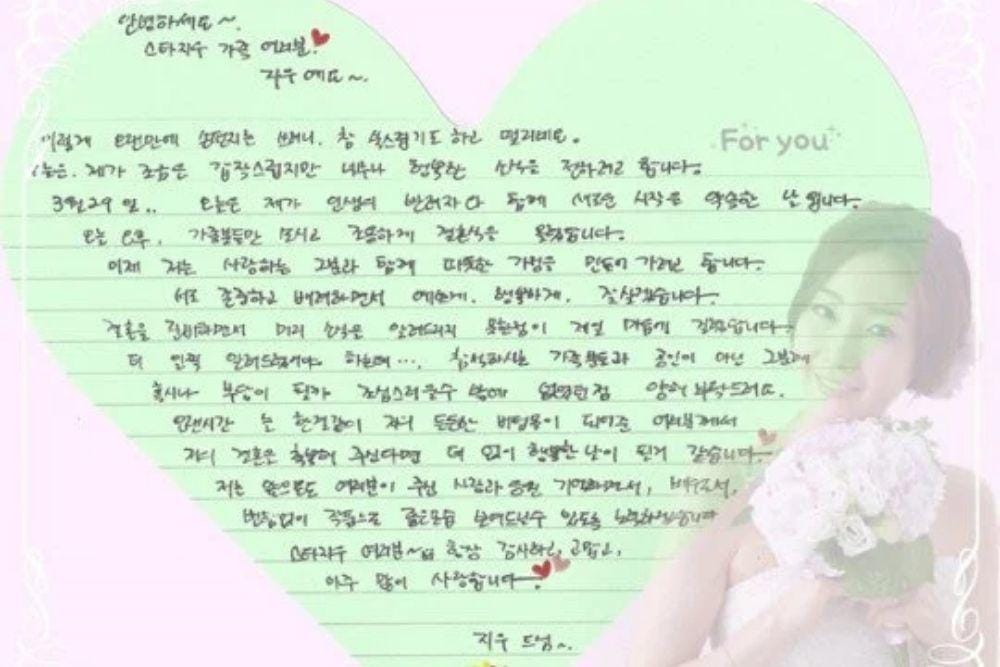 안녕하세요~.
스타지우 가족 여러분
지우예요~.
이렇게 오랜만에 손편지를 쓰려니, 참 쑥스럽기도 하고 떨리네요.
For you
오늘은. 제가 조금은 갑작스럽지만 너무나 행복한 소식을 전하려고 합니다.
3월 29일.. 오늘은 제가 인생의 반려자와 함께 새로운 시작을 약속한 날입니다.
오늘 오후, 가족분들만 모시고 조용하게 결혼식을 올렸습니다.
이제 저는 사랑하는 그분과 함께 따뜻한 가정을 만들어 가려고 합니다.
서로 존중하고 배려하면서 예쁘게, 행복하게, 잘살겠습니다.
결혼을 준비하면서 미리 소식을 알려드리지 못한점이 제일 마음에 걸렸답니다.
더 일찍 알려드렸어야 하는데..., 참석하시는 가족분들과 공인이 아닌 그분께
혹시나 부담이 될까 조심스러울수 밖에 없었던점 양해 부탁드려요.
오랜시간 늘 한결같이 저의 든든한 버팀목이 되어준 여러분께서
저의 결혼을 축복해 주신다면 더 없이 행복한 날이 될거 같습니다.
저는 앞으로도 여러분이 주신 사랑과 응원 기억하면서, 배우로서,
변함없이 작품으로 좋은모습 보여드릴수 있도록 노력하겠습니다
스타지우 여러분~ 항상 감사하고, 고맙고,
아주 많이 사랑합니다
지우 드림~.